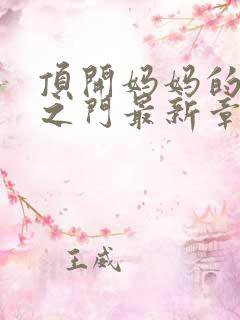 頂開妈妈的
之门最新章
王威